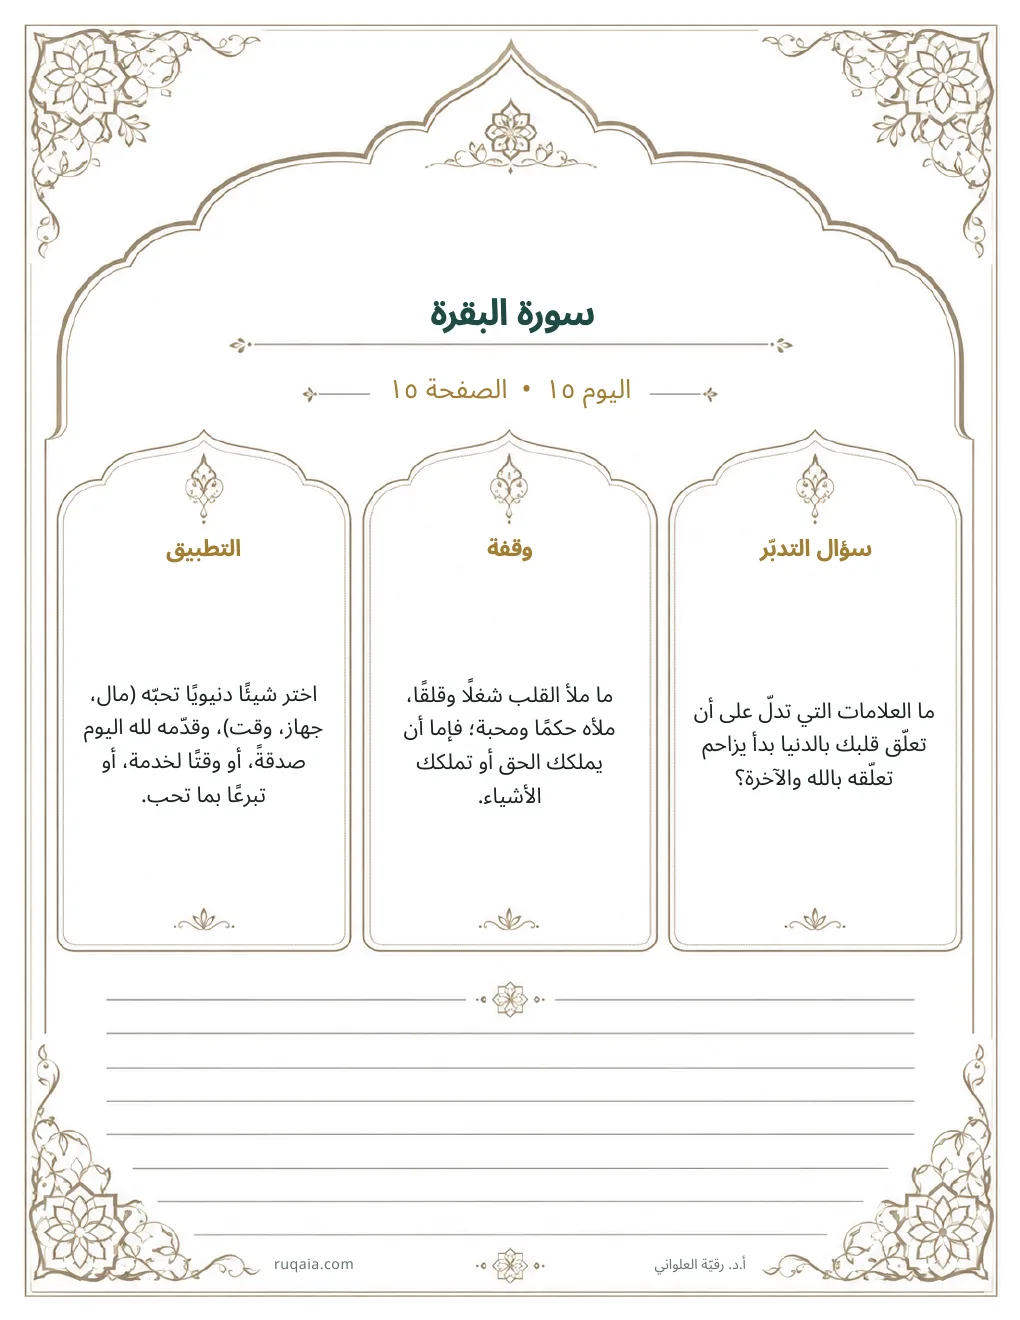 سورة البقرة
اليوم ١٥ • الصفحة ١٥
سؤال التدبّر
ما العلامات التي تدلّ على أن
تعلّق قلبك بالدنيا بدأ يزاحم
تعلّقه بالله والآخرة؟
وقفة
ما ملأ القلب شغلًا وقلقًا،
ملأه حكمًا ومحبة؛ فإما أن
يملكك الحق أو تملكك
الأشياء.
التطبيق
اختر شيئًا دنيويًا تحبّه (مال،
جهاز، وقت)، وقدّمه لله اليوم
صدقةً، أو وقتًا لخدمة، أو
تبرعًا بما تحب.
أ.د. رقيّة العلواني
ruqaia.com